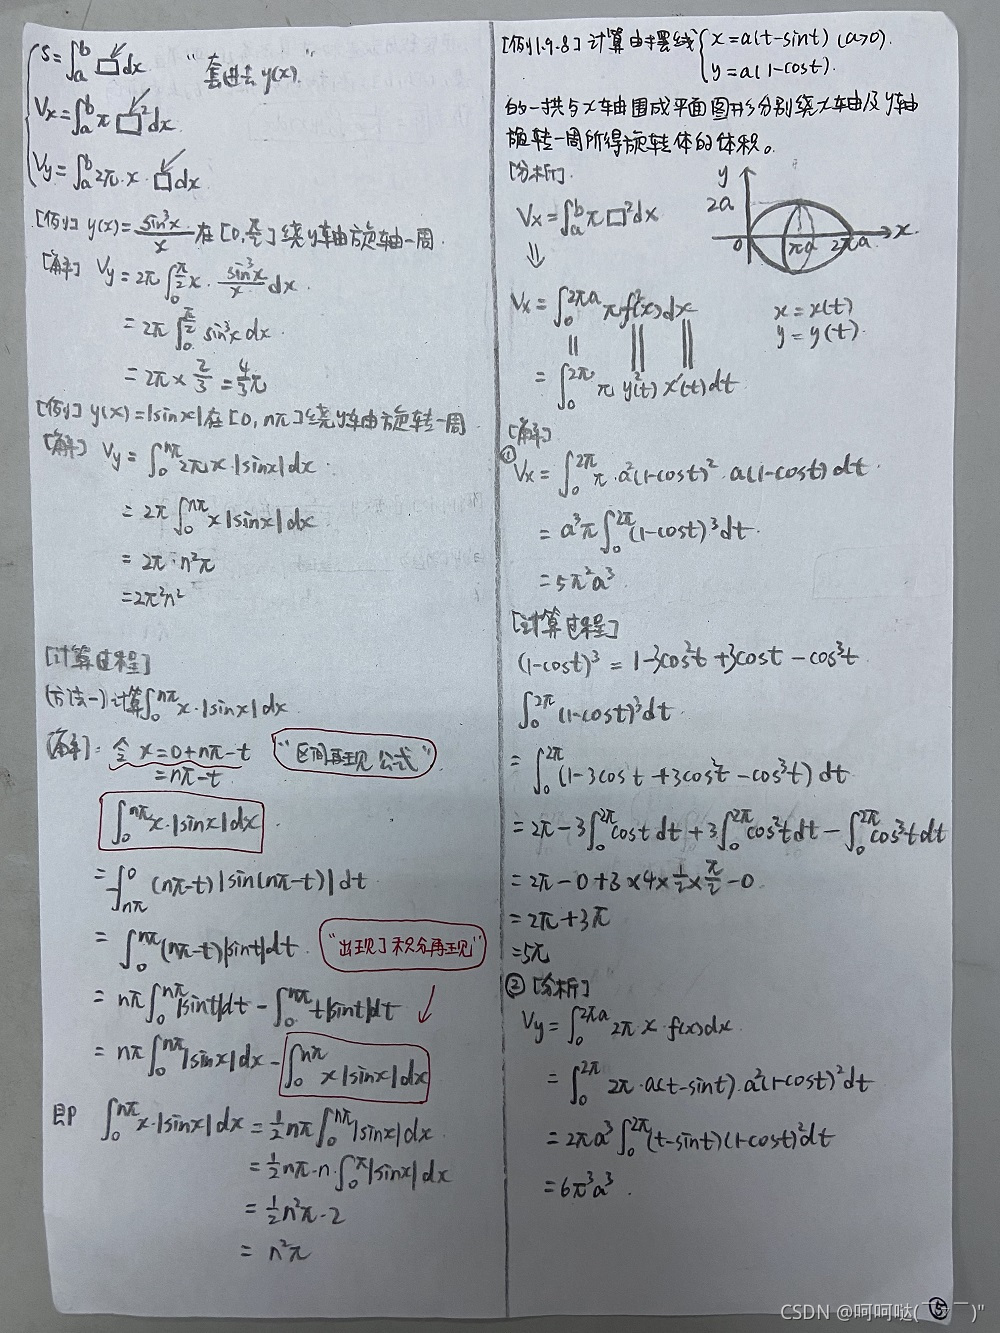 S=∫_a^b □dx "套进去y(x)."
Vx=∫_a^b π□²dx.
Vy=∫_a^b 2π·x·□dx
[例] y(x)=sin³x/x 在[0,π/2]绕y轴旋轴一周.
[解] Vy=2π∫_0^{π/2} x·sin³x/x dx.
=2π∫_0^{π/2} sin³xdx.
=2π×2/3=4/3π
[例] y(x)=|sinx|在[0,nπ]绕y轴旋转一周
[解] Vy=∫_0^{nπ} 2πx·|sinx|dx.
=2π∫_0^{nπ} x|sinx|dx
=2π·n²π
=2π²n²
[计算过程]
(方法一)计算∫_0^{nπ} x·|sinx|dx
[解]: 令x=0+nπ-t "区间再现公式"
=nπ-t
∫_0^{nπ} x·|sinx|dx
=-∫_{nπ}^0 (nπ-t)|sin(nπ-t)|dt
=∫_0^{nπ}(nπ-t)|sint|dt. "出现了积分再现"
=nπ∫_0^{nπ}|sint|dt-∫_0^{nπ}t|sint|dt
=nπ∫_0^{nπ}|sinx|dx-∫_0^{nπ}x|sinx|dx
即 ∫_0^{nπ}x·|sinx|dx=½nπ∫_0^{nπ}|sinx|dx
=½nπ·n·∫_0^π|sinx|dx
=½n²π·2
=n²π
[例1.9.8]计算由摆线{x=a(t-sint) (a>0).
y=a(1-cost).
的一拱与x轴围成平面图形分别绕x轴及y轴
旋转一周所得旋转体的体积。
[分析].
y
2a
0 πa 2πa x
Vx=∫_a^b π□²dx
⇓
Vx=∫_0^{2πa} πf²(x)dx x=x(t)
y=y(t).
=∫_0^{2π} π y²(t) x'(t)dt
[解]
① Vx=∫_0^{2π} π·a²(1-cost)²·a(1-cost)dt.
=a³π∫_0^{2π}(1-cost)³dt.
=5π²a³.
[计算过程]
(1-cost)³=1-3cos²t+3cost-cos³t.
∫_0^{2π}(1-cost)³dt.
=∫_0^{2π}(1-3cost+3cos²t-cos³t)dt
=2π-3∫_0^{2π}costdt+3∫_0^{2π}cos²tdt-∫_0^{2π}cos³tdt
=2π-0+3×4×½×π/2-0
=2π+3π
=5π
② [分析]
Vy=∫_0^{2πa} 2πx·f(x)dx.
=∫_0^{2π} 2π·a(t-sint)·a²(1-cost)²dt
=2πa³∫_0^{2π}(t-sint)(1-cost)²dt
=6π³a³.
⑤
CSDN @呵呵哒(￣▽￣)"